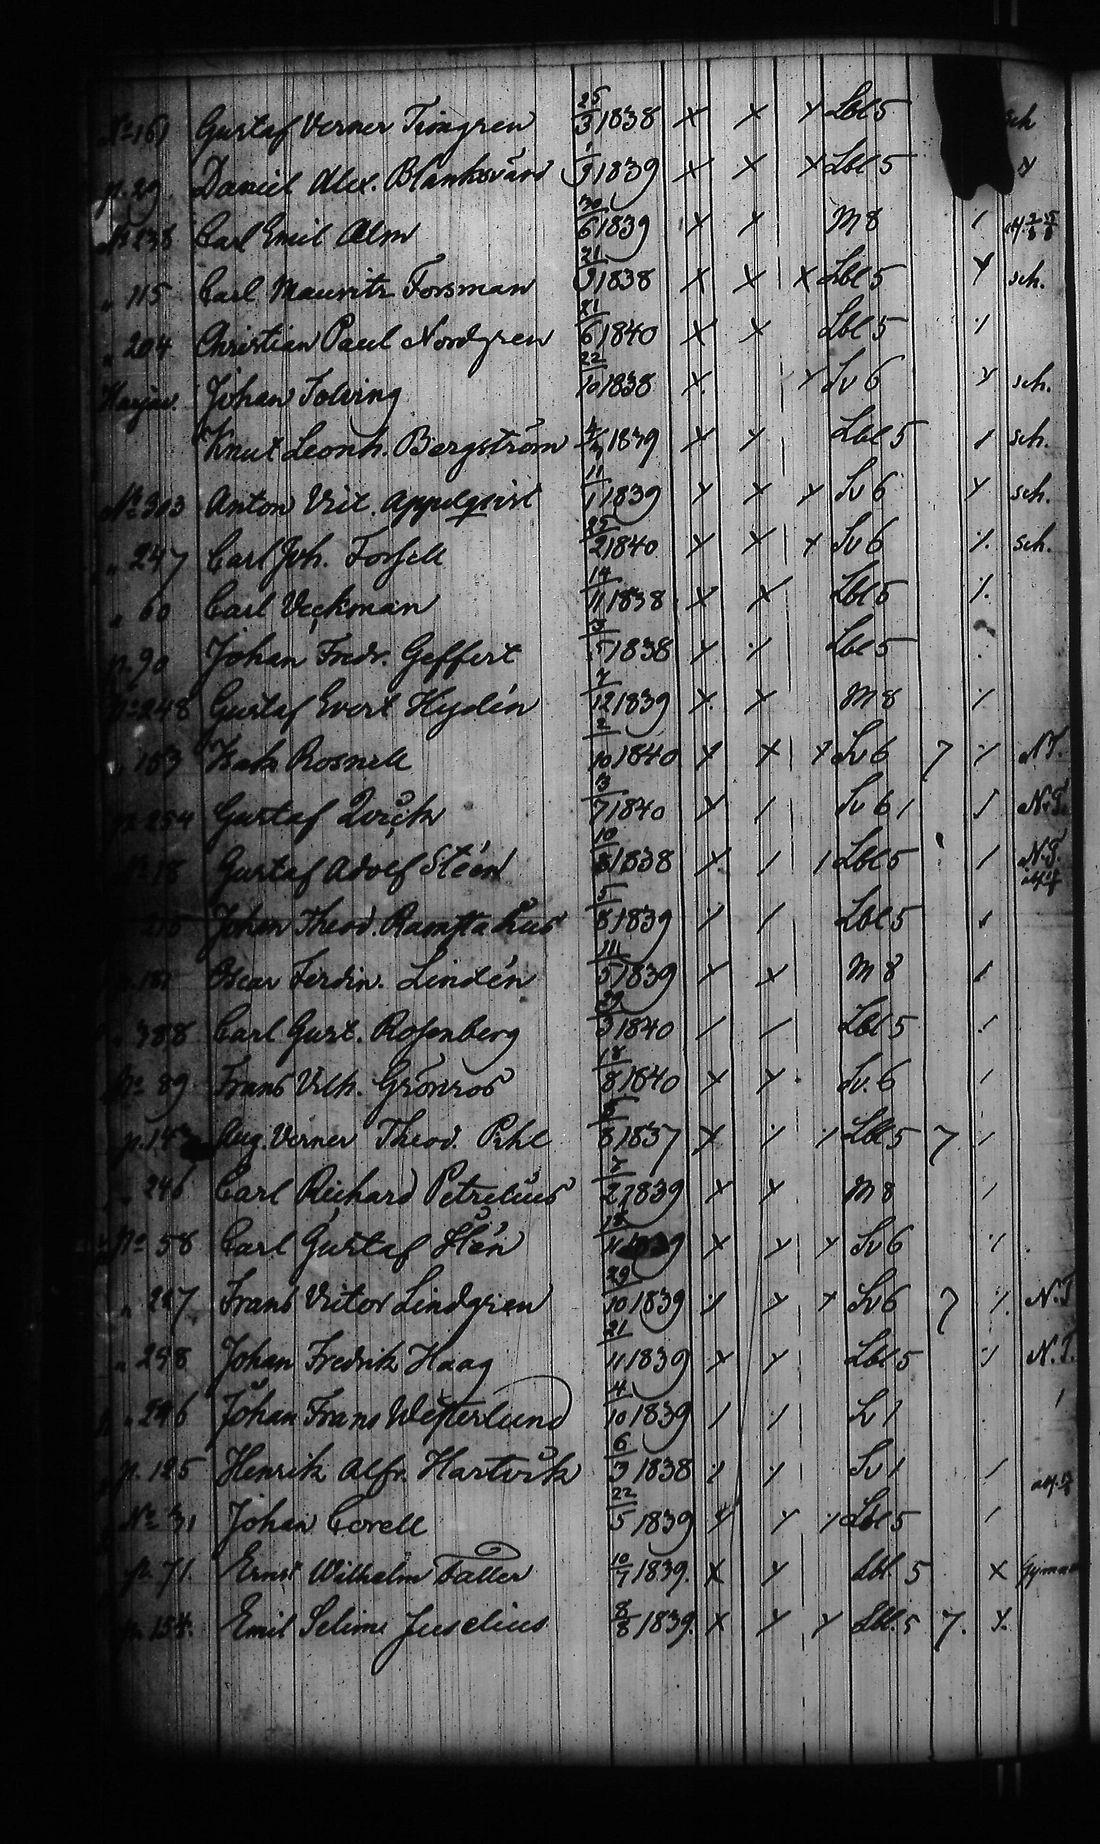 No 161 Gustaf Verner Timgren 25/3 1838 x x x Lbl 5 sch
p. 29 Daniel Alex. Blanksvärd 1/3 1839 x x x Lbl 5 x
No 238 Carl Emil Alm 30/6 1839 x x M 8 /
" 115 Carl Mauritz Forsman 21/3 1838 x x x Lbl 5 x sch.
" 204 Christian Paul Nordgren 21/6 1840 x x Lbl 5 /
Johan Tolving 22/10 1838 x x Sv 6 x sch.
Knut Leonh. Bergström 1839 x x Lbl 5 / sch.
No 303 Anton Vict. Appelqvist 11/1 1839 x x x Sv 6 x sch.
" 247 Carl Joh. Forsell 22/2 1840 x x x Sv 6 /. sch.
" 60 Carl Veckman 14/11 1838 x x Lbl 5 /.
p. 90 Johan Fredr. Geffert 3/5 1838 x / Lbl 5
No 248 Gustaf Evert Hydén 7/12 1839 x x M 8 /
" 183 Isak Rosnell 2/10 1840 x x x Sv 6 7 / N.T.
p. 254 Gustaf Qvick 3/7 1840 x / Sv 6 / N.T.
No 18 Gustaf Adolf Stéen 10/8 1838 x / / Lbl 5 / N.T.
Johan Theod. 5/8 1839 / / Lbl 5 /
Oscar Ferdin. Lindén 11/5 1839 x x M 8 /
" 388 Carl Gust. Rosenberg 29/3 1840 / / Lbl 5 /
No 89 Frans Vilh. Grönros 18/8 1840 x x Sv. 6 /
p. 143 Aug. Verner Theod. Pihl 8/8 1837 x / / Lbl 5 7 /
" 246 Carl Richard Petrelius 7/2 1839 x x M 8 /
No 58 Carl Gustaf x x x Sv 6 /
" 227 Frans Victor Lindgren 29/10 1839 / x x Sv 6 7 /. N.T.
" 298 Johan Fredrik Haag 21/11 1839 x x Lbl 5 / N.T.
" 296 Johan Frans Westerlund 4/10 1839 / / L 1 /
p. 125 Henrik Alfr. Hartvik 6/3 1838 / x Sv 1 /
No 31 Johan Corell 22/5 1839 x x / Lbl 5 /
p. 71 Ernst Wilhelm Faller 10/7 1839. x x Lbl. 5 x
p. 154. Emil Selim Juselius 8/8 1839. x x x Lbl. 5 7. x.